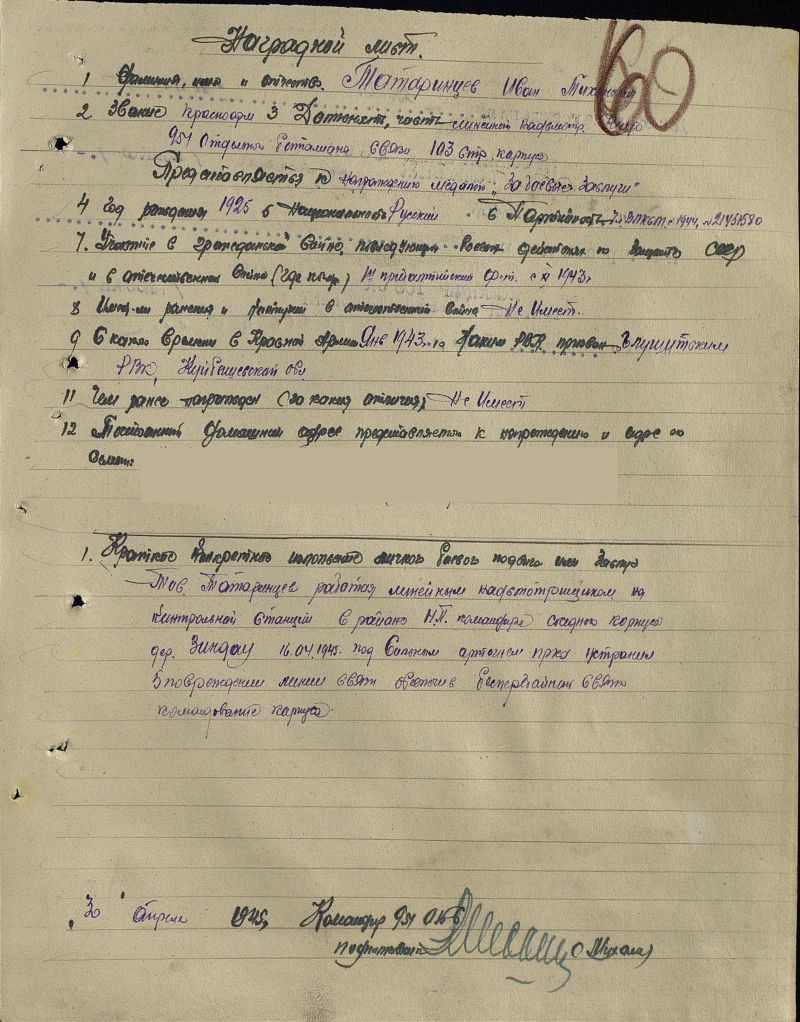 Наградной лист.
60
1 Фамилия, имя и отчество. Татаринцев Иван
2 Звание Красноарм 3 Должност, часть линейный надсмотр.
951 Отдельного батальона связи 103 стр. корпуса
Представляется к награждению медалью „За боевые заслуги"
4 Год рождения 1925 5 Национальность Русский 6 Партийность с 1944, № 21451580
7. Участие в гражданской войне, последующих боевых действиях по защите СССР
и в отечественной войне (где когда) Прибалтийский фр-т. с XI 1943г
8 Имеет ли ранения и контузии в отечественной войне Не Имеет.
9 С какого времени в Красной Армии Янв 1943 го Каким РВК призван Глушитским
РВК, Куйбышевской обл
11 Чем ранее награжден (за какия отличия) Не Имеет
12 Постоянный домашний адрес представляемого к награждению и адрес его
1. Краткое конкретное изложение личного боевого подвига или заслуг
Тов. Татаринцев работая линейным надсмотрщиком на
контрольной станции в районе Н.П. командира корпуса
дер. Зиндау 16.04.1945. под сильным артогнем прка устранил
5 повреждении линии связи обеспечив бесперебойная связь
командование корпуса.
30 Апреля 1945, Командир 951 ОБС
подполковник